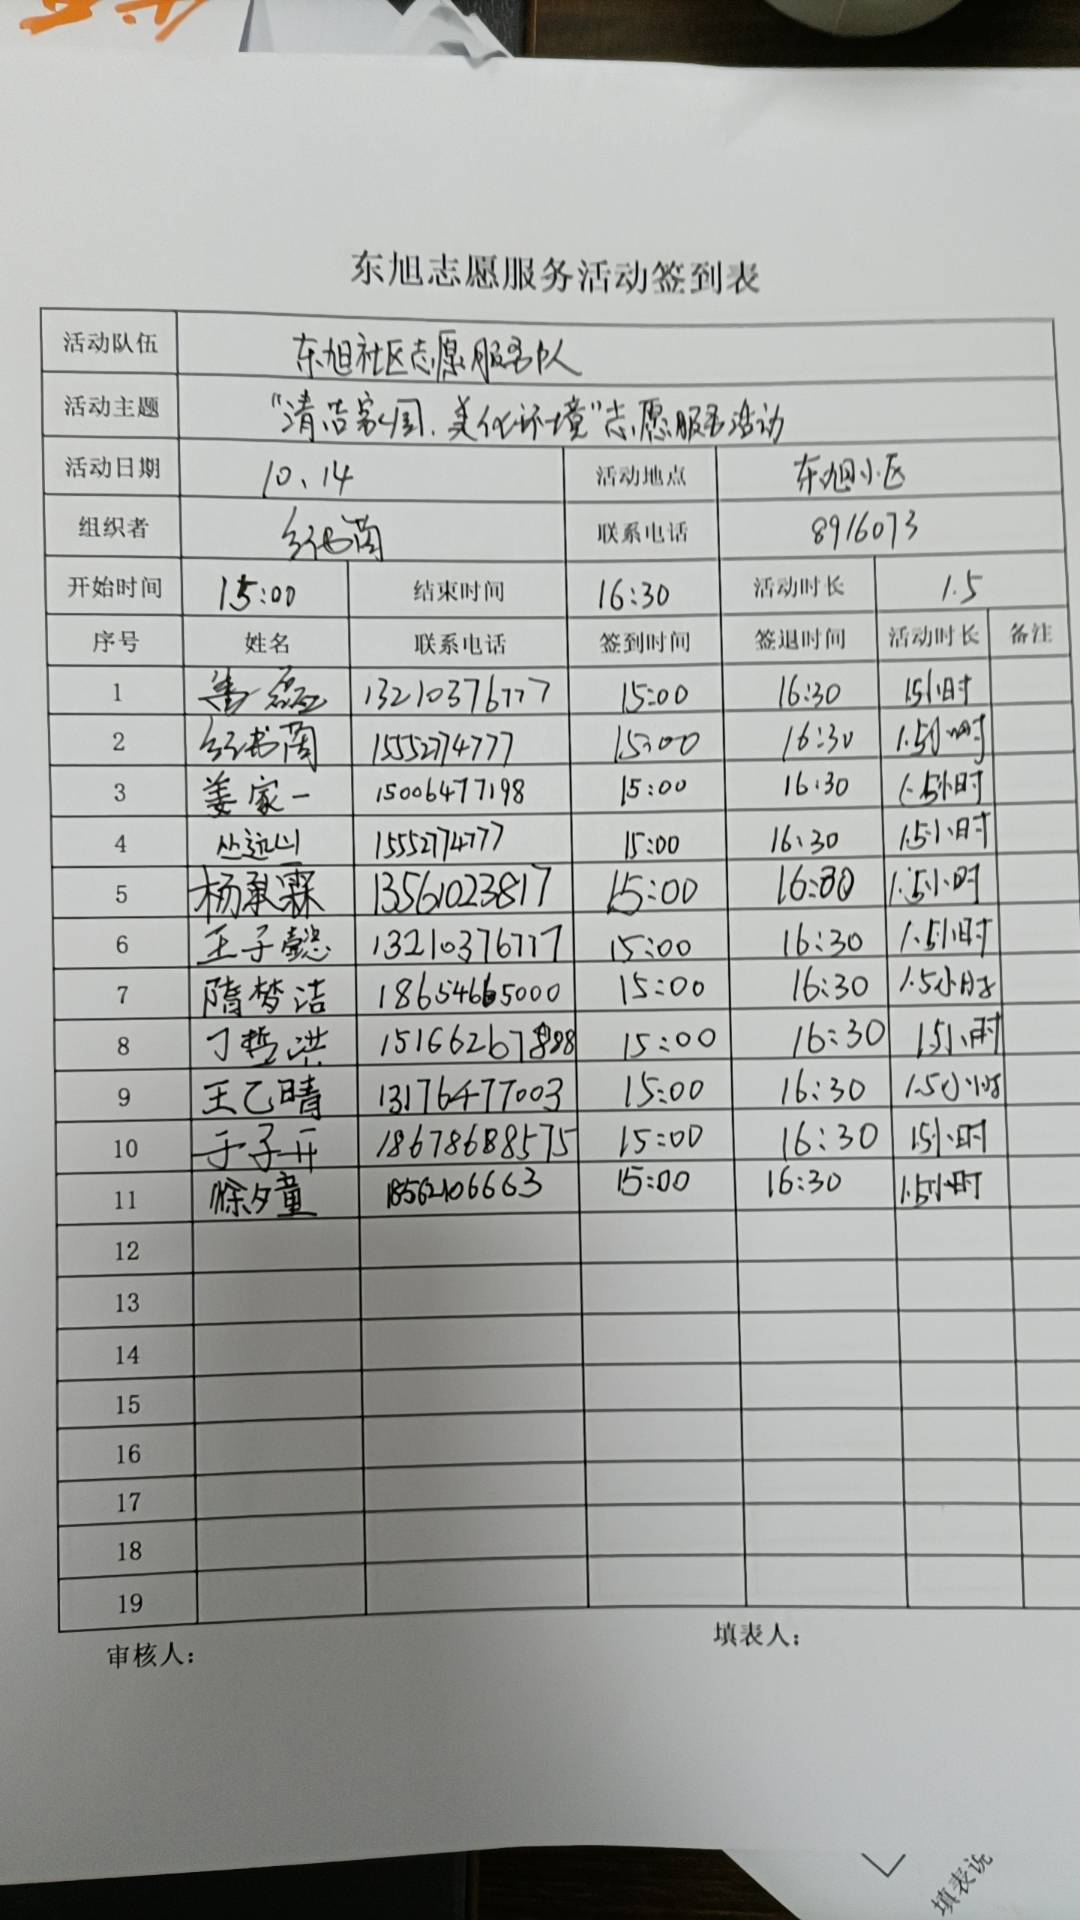 东旭志愿服务活动签到表
活动队伍 东旭社区志愿服务队
活动主题 "清洁家园、美化环境"志愿服务活动
活动日期 10、14 活动地点 东旭小区
组织者 联系电话 8916073
开始时间 15:00 结束时间 16:30 活动时长 1.5
序号 姓名 联系电话 签到时间 签退时间 活动时长 备注
1 13210376777 15:00 16:30 1.5小时
2 15552774777 15:00 16:30 1.5小时
3 姜家一 15006477198 15:00 16:30 1.5小时
4 丛远山 15552774777 15:00 16:30 1.5小时
5 杨承霖 13561023817 15:00 16:30 1.5小时
6 王子懿 13210376777 15:00 16:30 1.5小时
7 隋梦洁 18654665000 15:00 16:30 1.5小时
8 丁哲洪 15:00 16:30 1.5小时
9 王乙晴 13176477003 15:00 16:30 1.5小时
10 于子开 18678688575 15:00 16:30 1.5小时
11 徐夕童 18562106663 15:00 16:30 1.5小时
12
13
14
15
16
17
18
19
审核人： 填表人：
填表说